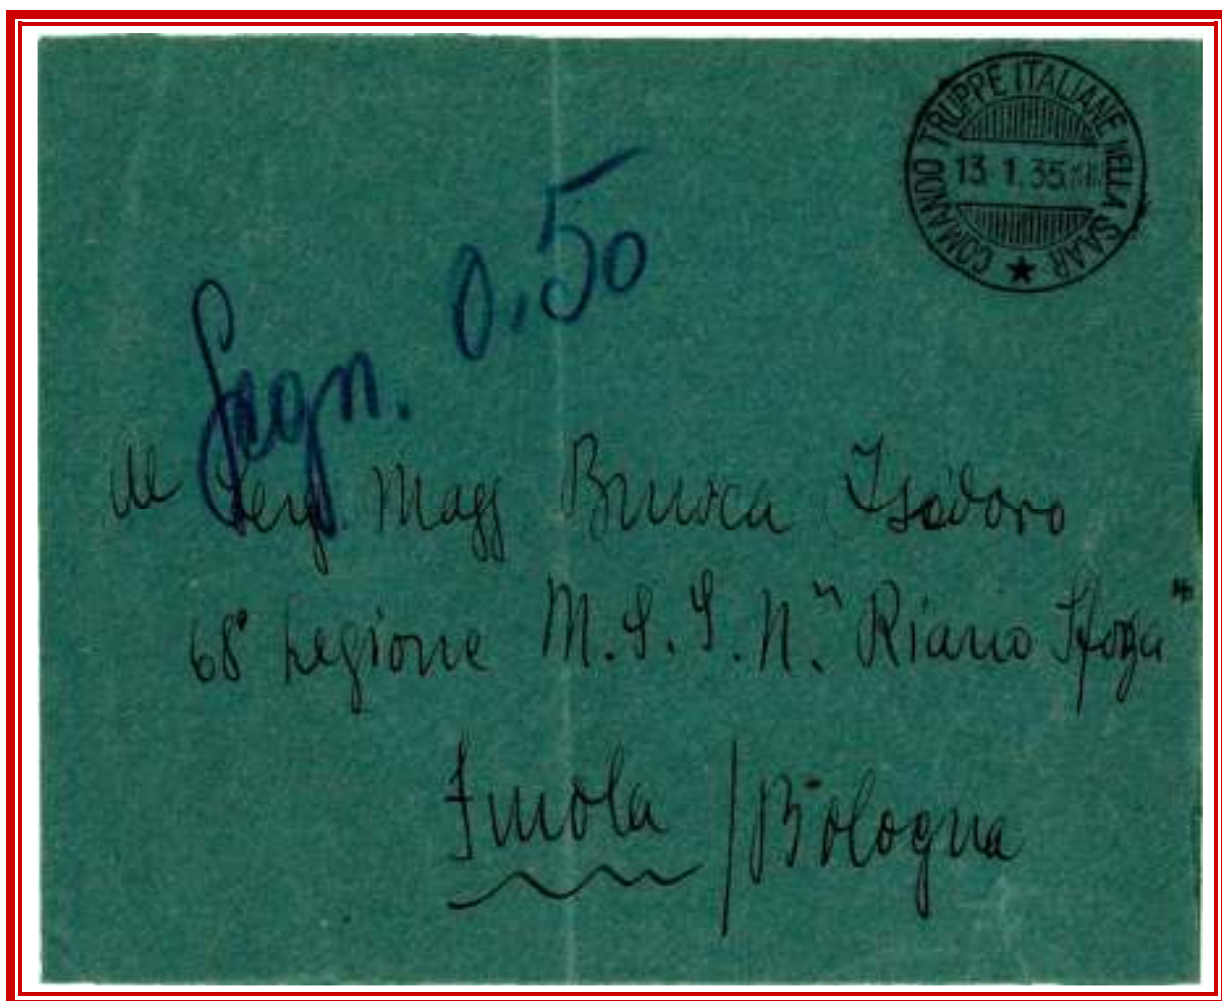 COMANDO TRUPPE ITALIANE NELLA SAAR
13 1.35 XIII
Segn. 0,50
Al Serg. Magg Isidoro
68° Legione M.S.S.N. "Riario Sforza"
Imola / Bologna